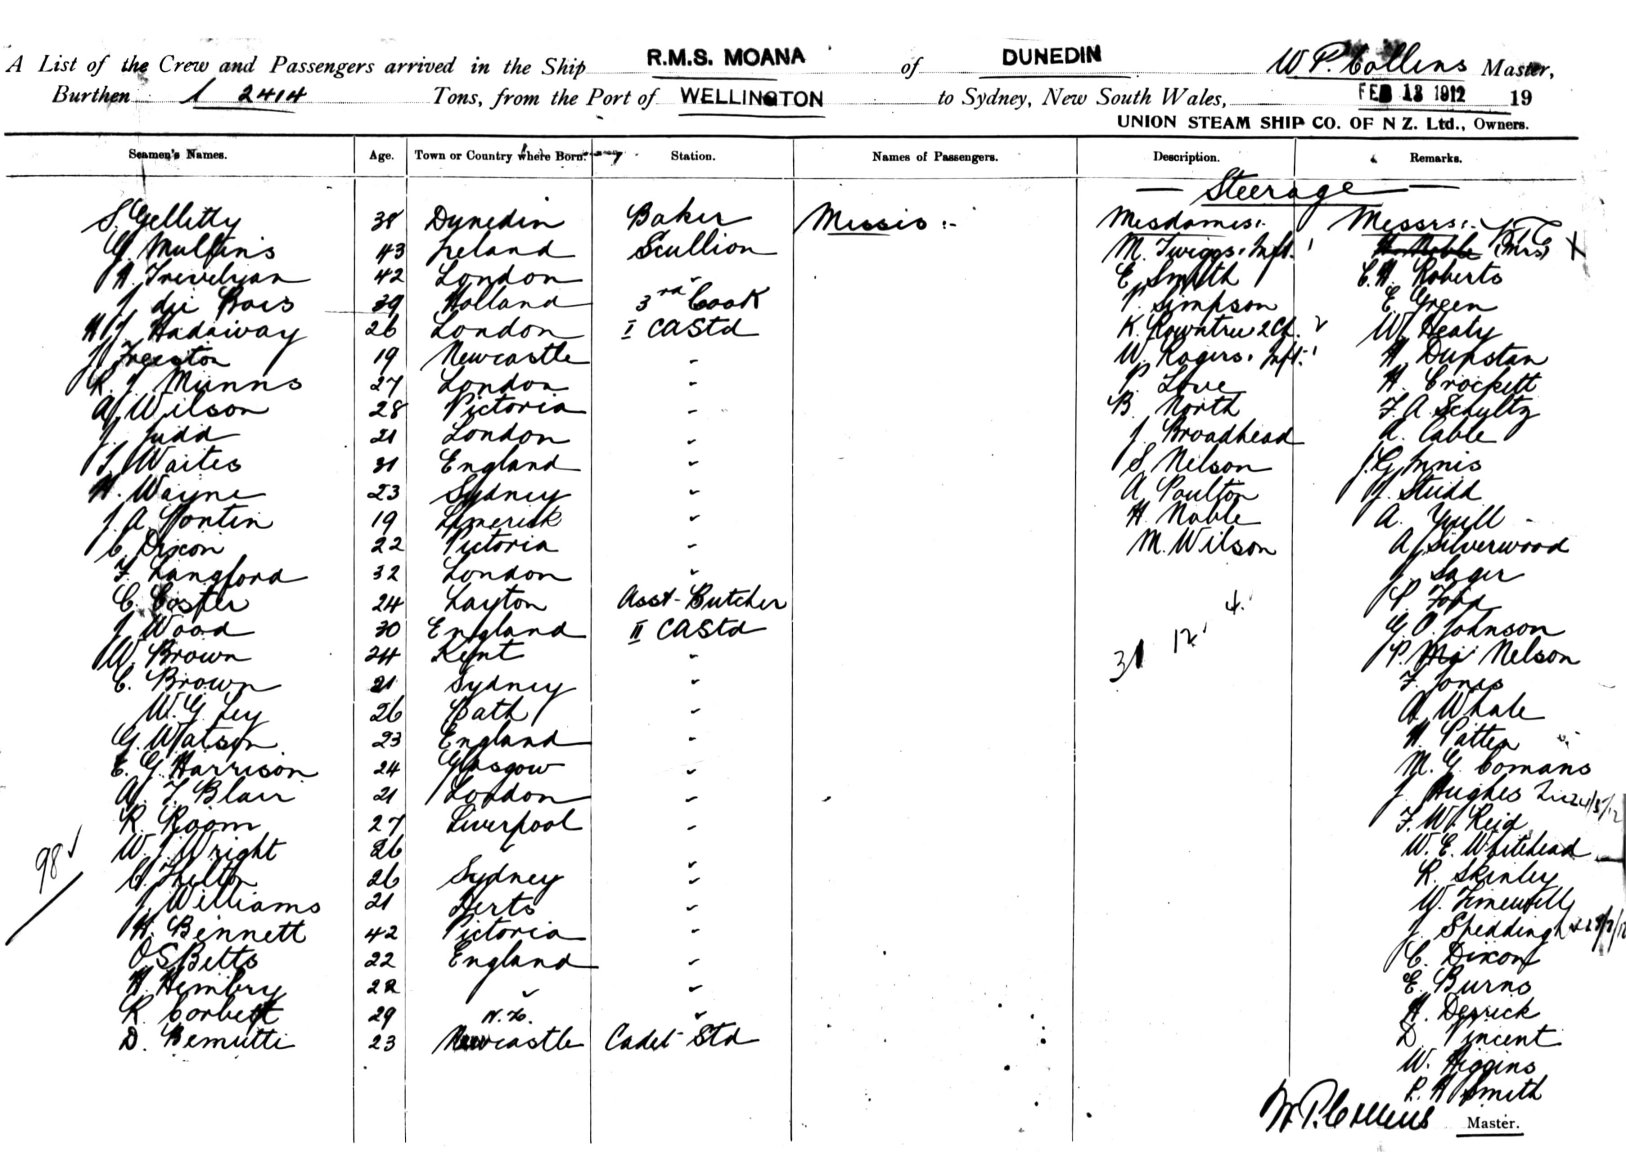 A List of the Crew and Passengers arrived in the Ship R.M.S. MOANA of DUNEDIN W P. Collins Master,
Burthen 2414 Tons, from the Port of WELLINGTON to Sydney, New South Wales, FEB 13 1912 19
UNION STEAM SHIP CO. OF N Z. Ltd., Owners.
Seamen's Names. Age. Town or Country where Born. Station. Names of Passengers. Description. Remarks.
Steerage
S. Gellitly 38 Dunedin Baker Missis :- Mesdames:- Messrs:-
G. Mullins 43 Ireland Scullion M. Twiggs. Inft. 1 H Noble (Mrs) X
A. Trevelyan 42 London " E Smith C. H. Roberts
J. du Bois 39 Holland 3rd Cook Simpson E Green
H J Hadaway 26 London I CAStd K. Rowntree 2 Ch. 2 W. Healy
J Freeston 19 Newcastle " W. Rogers. Inft. 1 H Dunstan
R. J. Munns 27 London " Love H Crockett
A Wilson 28 Victoria " B North F. A. Schultz
J. Judd 21 London " J Broadhead A. Cable
T. Waites 31 England " S Nelson J. G Innis
H. Wayne 23 Sydney " A Poulton J Studd
J. A Pontin 19 Limerick " H Noble A. Yuill
C Dixon 22 Victoria " M. Wilson A Silverwood
F Langford 32 London " J Sager
C. Coster 24 Layton Asst- Butcher Ford
J Wood 30 England II CAStd G. O. Johnson
W. Brown 24 Kent " 31 12. 4. P. Nelson
C. Brown 21 Sydney " F. Jones
W. G. Ley 26 Bath " A Whale
G. Watson 23 England " H Patten
E. G. Harrison 24 Glasgow " M. G. Comans
A J Blair 21 London " J Hughes
R. Room 27 Liverpool " F. W. Reid
98 W. J Wright 26 " " W. E. Whitehead
C. Thelton 26 Sydney " R. Skinley
J Williams 21 Herts " W.
H. Bennett 42 Victoria " J Spedding
O S Betts 22 England " C. Dixon
H Hembry 22 " " E Burns
R Corbett 29 N.Z. " H. Derrick
D. Bemutti 23 Newcastle Cadet Std D Vincent
W. Higgins
P. H Smith
W P. Collins Master.